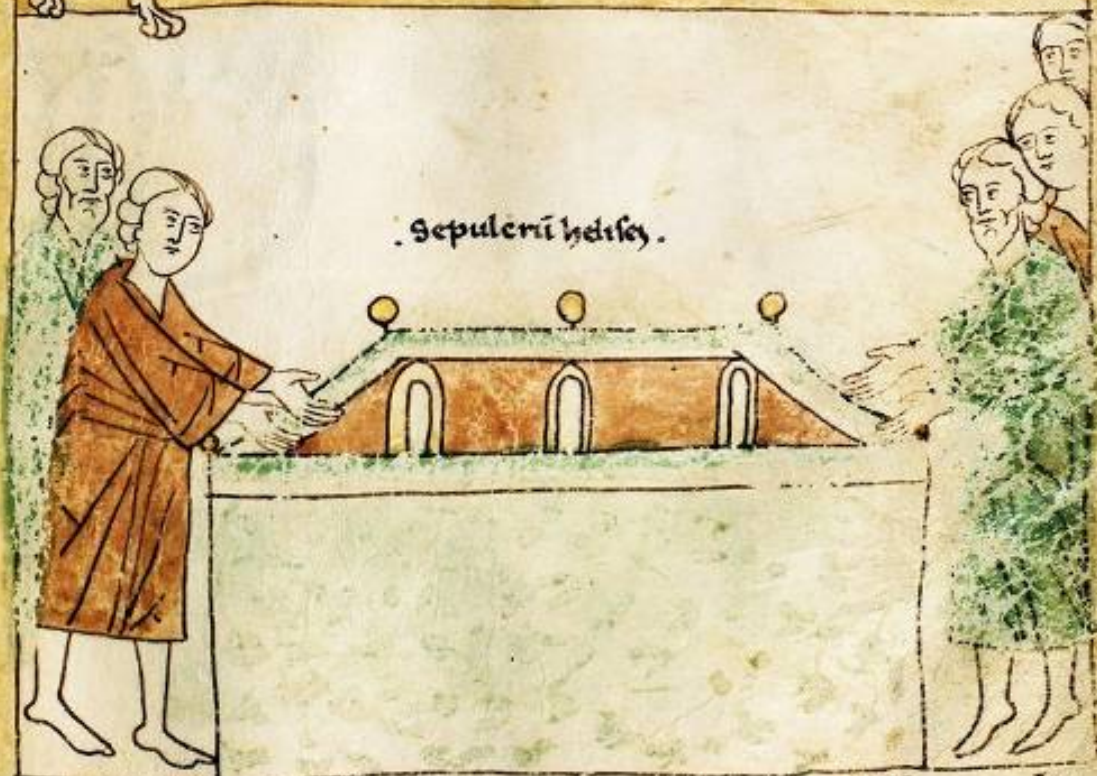 . Sepulcrū helisey .